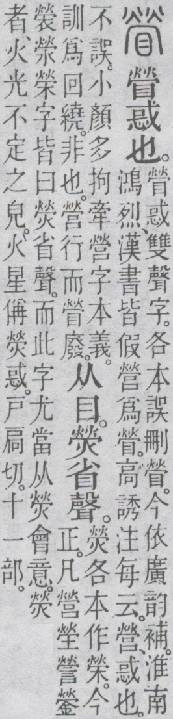 䁝惑也。
䁝惑雙聲字。各本誤刪䁝。今依廣韵補。淮南
鴻烈、漢書皆假營爲䁝。高誘注每云。營、惑也。
不誤。小顏多拘牽營字本義。
訓爲回繞。非也。營行而䁝廢。
从目。熒省聲。
熒各本作榮。今
正。凡營塋謍鎣
褮縈榮字皆曰熒省聲。而此字尤當从熒會意。熒
者火光不定之皃。火星偁熒惑。戸扃切。十一部。